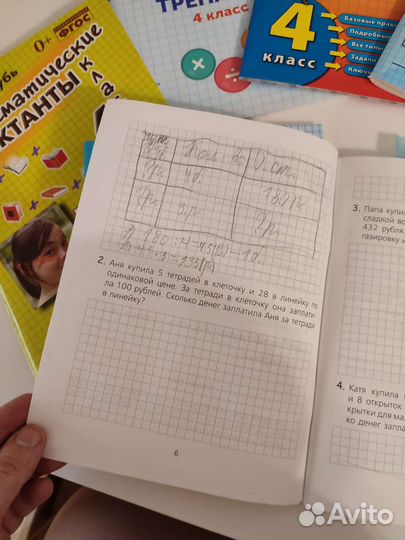 ТРЕН
4 класс
4
класс
Базовые прав
Подробны
Все типы
Задачи
Ключи
0+
ФГОС
убь
матические
ктанты
Кол-во
Ост.
4 р.
180 р.
3 р.
1) 180 : 4 = 45 (р.) – 1 д.
2) 45 · 3 = 135 (р.)
2. Аня купила 5 тетрадей в клеточку и 28 в линейку по
одинаковой цене. За тетради в клеточку она заплати-
ла 100 рублей. Сколько денег заплатила Аня за тетради
в линейку?
6
3. Папа купи
сладкой во
432 рубля.
газировку и
4. Катя купила
и 8 открыток
крытки для ма
ко денег запла
Avito